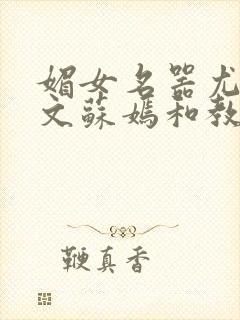 媚女名器尤
文蘇媽和教
鞭真香